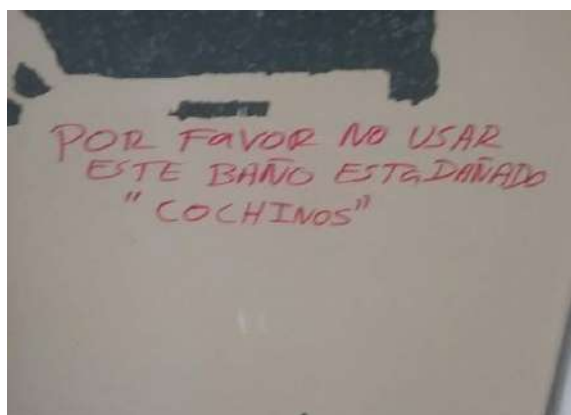 POR FaVOR NO USAR
ESTE BAÑO ESTa DAÑADO
"COCHINOS"